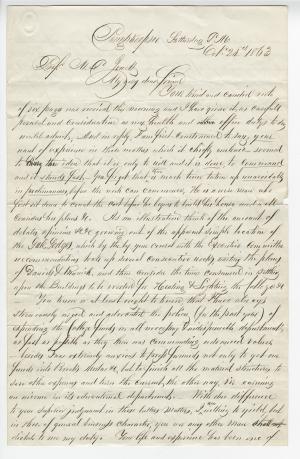 Poughkeepsie Saturday P.M.
Oct. 24th 1863
Prof. M. P. Jewett
My very dear friend
Your kind and candid note
of six pages was received this morning and I have given it as careful
perusal and consideration as my health and office duties to day
would admit. And in reply I am first constrained to say, your
want of experience in these matters which it chiefly embraces, seemed
to the idea that it is only to will and it is done to command
and it stands fast. You forget that much time is taken up unavoidably
in preliminaries before the work can commence. He is a wise man who
first sits down to count the cost before he begins to build his house and in all
his plans &c. As an illustration think of the amount of
debate, opinions &c &c growing out of the apparent simple location of
the Gate Lodge, which by the by you served with the Executive Committee
recommending took up several consecutive weeks
and then consider the time consumed in putting
upon the Buildings to be erected for Heating & Lighting the College &c
You know or at least ought to know that I have always
strenuously urged and advocated the policy (in the past year) of
expending the College funds in all necessary departments,
as fast as possible as they then was commanding advanced values
besides I am extremely anxious to push forward not only to get our
funds into Bricks Mortar &c, but to finish all the material structures to
save other expenses and turn the current, the other way, viz earning
an income in its educational departments. With due difference
to your superior judgment in these matters, I am willing to yield, but
in those of general business character, you are any other man
dictate to me my duty. Your life and experience has been one of